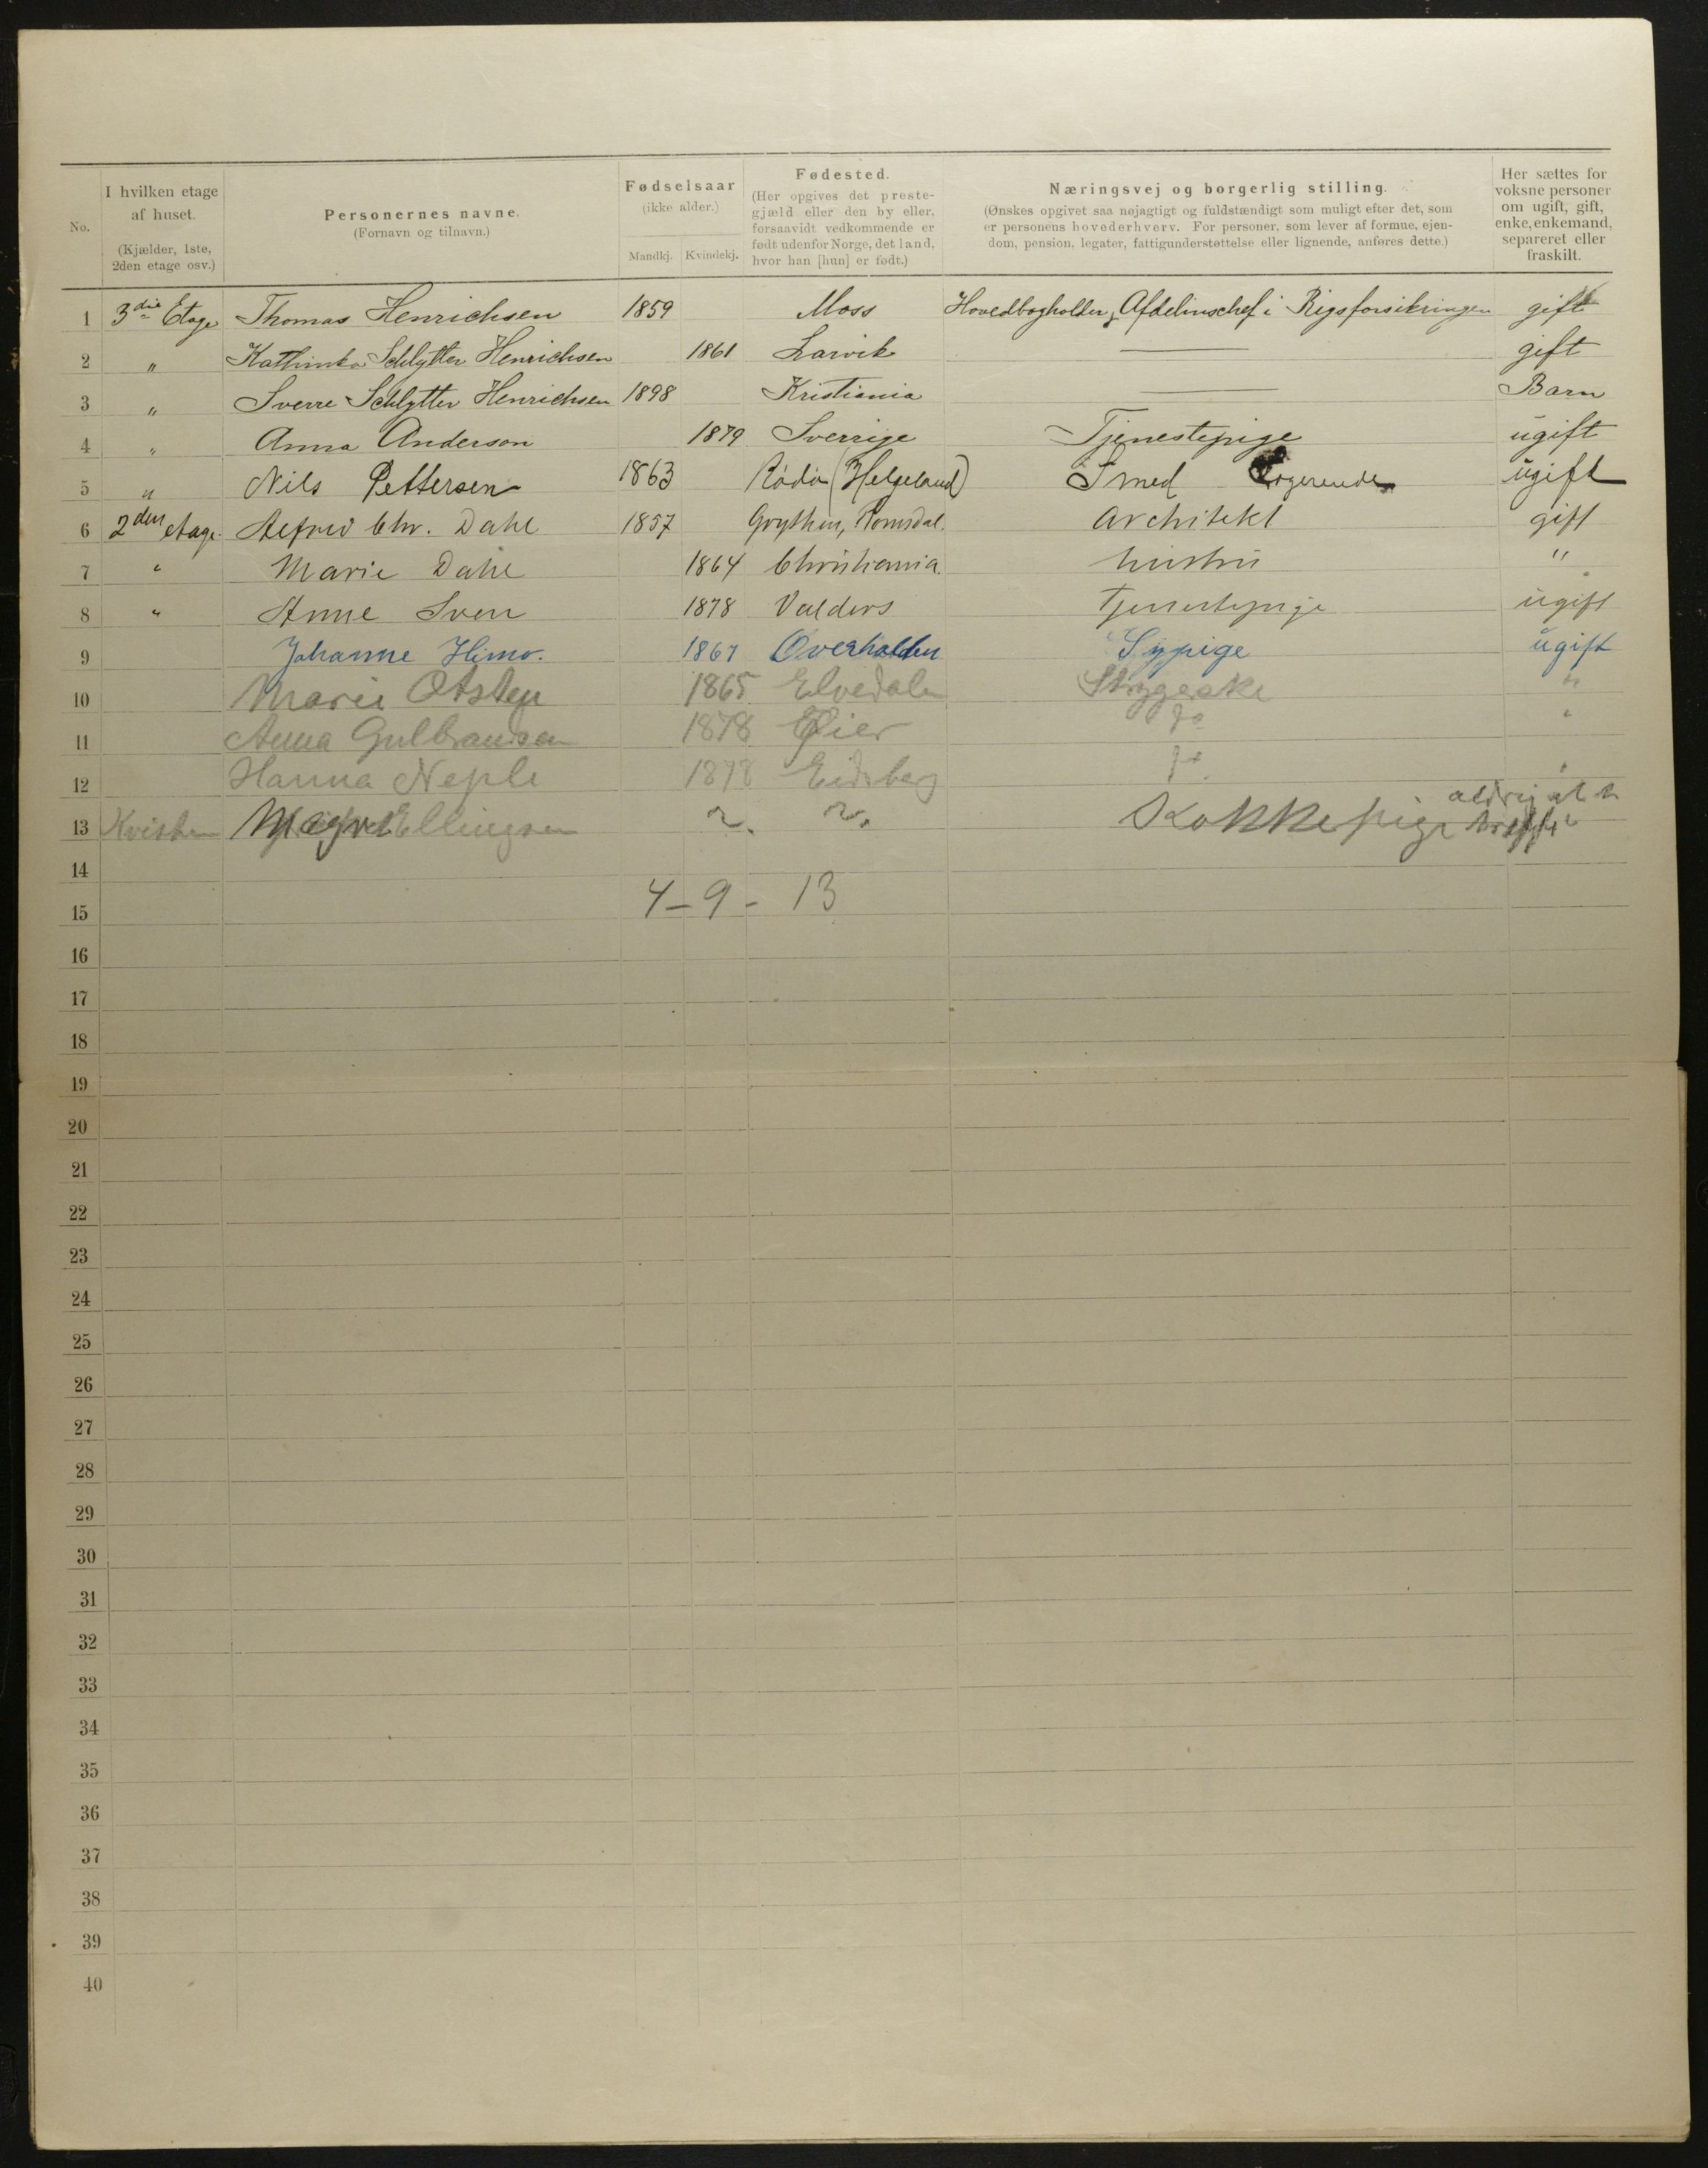 No.
I hvilken etage
af huset.
(Kjælder, 1ste,
2den etage osv.)
Personernes navne.
(Fornavn og tilnavn.)
Fødselsaar
(ikke alder.)
Mandkj. Kvindekj.
Fødested.
(Her opgives det preste-
gjæld eller den by eller,
forsaavidt vedkommende er
født udenfor Norge, det land,
hvor han [hun] er født.)
Næringsvej og borgerlig stilling.
(Ønskes opgivet saa nøjagtigt og fuldstændigt som muligt efter det, som
er personens hovederhverv. For personer, som lever af formue, ejen-
dom, pension, legater, fattigunderstøttelse eller lignende, anføres dette.)
Her sættes for
voksne personer
om ugift, gift,
enke, enkemand,
separeret eller
fraskilt.
1 3die Etage Thomas Henrichsen 1859 Moss Hovedbogholder, Afdelinschef i Rigsforsikringen gift
2 " Kathinka Schlytter Henrichsen 1861 Larvik — gift
3 " Sverre Schlytter Henrichsen 1898 Kristiania — Barn
4 " Anna Anderson 1879 Sverrige Tjenestepige ugift
5 " Nils Pettersen 1863 Rödö (Helgeland) Smed Logerende ugift
6 2den etage. Alfred Chr. Dahl 1857 Grythen, Romsdal. Architekt gift
7 " Marie Dahl 1864 Christiania. hustru "
8 " Anne Sven 1878 Valders Tjenestepige ugift
9 Johanne Himo. 1867 Overhalden Sypige ugift
10 Marie 1865 Elvedalen Strygerske "
11 Anna Gulbransen 1878 Øier Do "
12 Hanna Neple 1878 Eidsberg Do "
13 Kvisten Ellingsen ~. ~. Kokkepige aldrig at
træffe
14
4–9–13
15
16
17
18
19
20
21
22
23
24
25
26
27
28
29
30
31
32
33
34
35
36
37
38
39
40